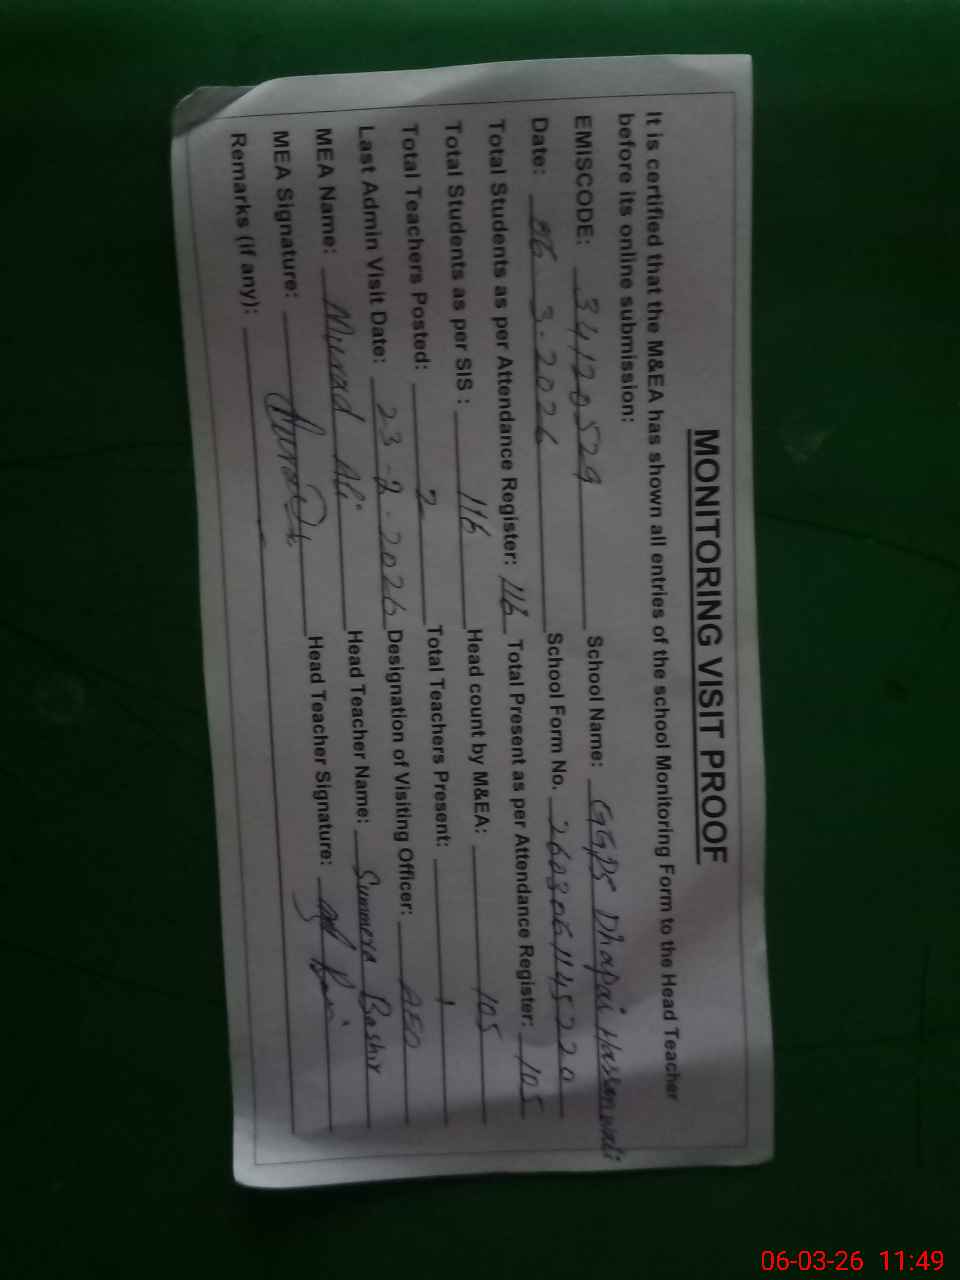 MONITORING VISIT PROOF
It is certified that the M&EA has shown all entries of the school Monitoring Form to the Head Teacher
before its online submission:
EMISCODE: 34120529 School Name: GGPS Dhapai Hassanwali
Date: 06 3.2026 School Form No. 2603061145220
Total Students as per Attendance Register: 116 Total Present as per Attendance Register: 105
Total Students as per SIS : 116 Head count by M&EA: 105
Total Teachers Posted: 2 Total Teachers Present: 1
Last Admin Visit Date: 23-2-2026 Designation of Visiting Officer: AEO
MEA Name: Murad Ali Head Teacher Name: Summera Bashir
MEA Signature: Head Teacher Signature:
Remarks (if any):
06-03-26 11:49